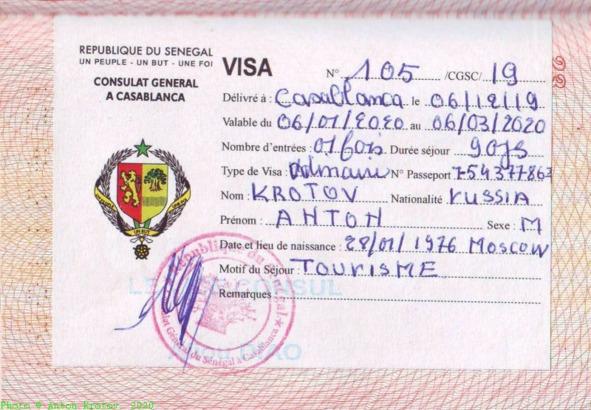 REPUBLIQUE DU SENEGAL
UN PEUPLE - UN BUT - UNE FOI
CONSULAT GENERAL
A CASABLANCA
VISA N° 105 /CGSC/ 19
Délivré à : Casablanca le 06/12/19
Valable du 06/01/2020 au 06/03/2020
Nombre d'entrées : 01 fois Durée séjour 90 js
Type de Visa : N° Passeport 754377863
Nom : KROTOV Nationalité RUSSIA
Prénom : ANTON Sexe : M
Date et lieu de naissance : 28/01/1976 MOSCOW
Motif du Séjour : TOURISME
Remarques
République du Sénégal
Consulat Général du Sénégal à Casablanca
CONSUL
Photo © Anton Krotov, 2020